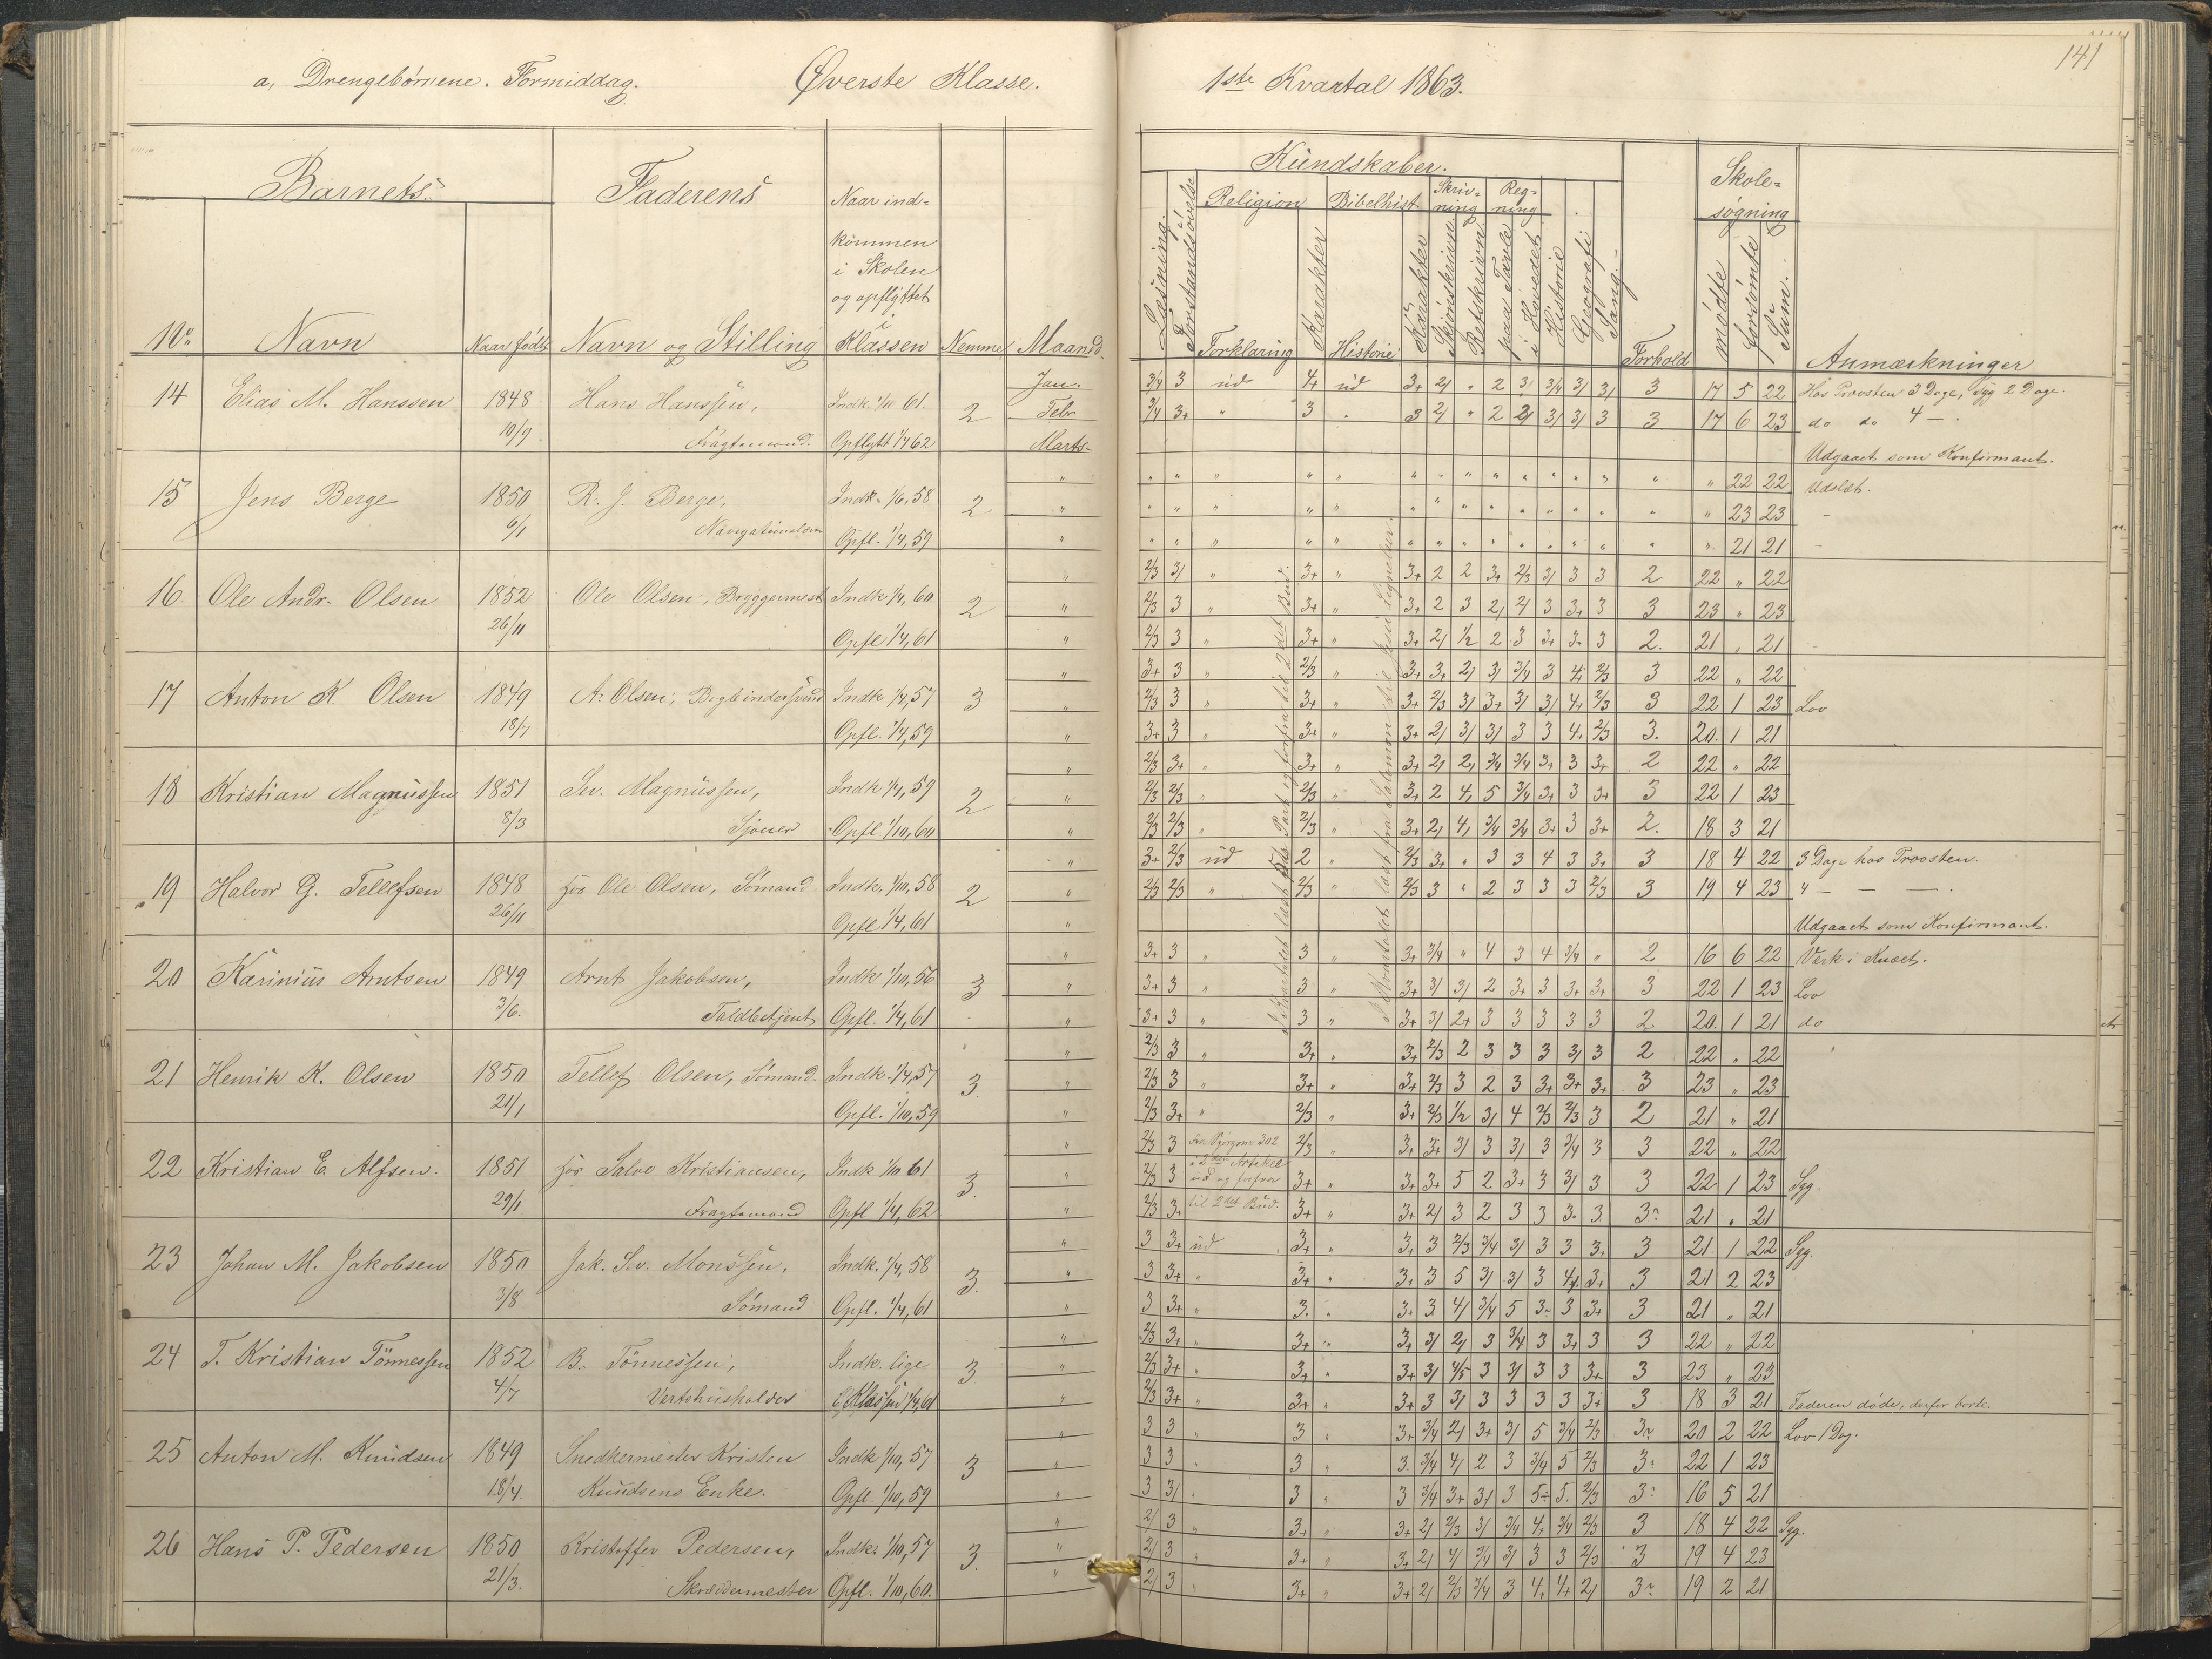 a, Drengebørnene. Formiddag. Øverste Klasse.
1ste Kvartal 1863.
141
Barnets Faderens Naar ind-
kommen
i Skolen
og opflyttet
i
No Navn Naar født Navn og Stilling Klassen Nemme Maaned.
Kundskaber.
Læsning. Forstandsøvelse Religion Bibelhist. Skriv-
ning Reg-
ning
Forklaring Karakter Historie Karakter Skjönskrivn. Retskrivn. paa Tavle i Hovedet Historie Geografi Sang.
Forhold
Skole-
søgning
mødte forsømte Sum.
Anmærkninger
14 Elias M. Hanssen 1848 Hans Hanssen, Indk. 1/11 61. 2 Jan.
10/9 Fragtemand. Opflytt 1/4 62 Febr
Marts-
3/4 3 ud 4+ ud 3+ 2/ " 2 3/ 3/4 3/ 3/ 3 17 5 22 Hos Provsten 3 Dage, Syg 2 Dage.
3/4 3+ " 3 " 3 2/ " 2 2/ 3/ 3/ 3 3 17 6 23 do do 4 -.
Udgaaet som Konfirmant.
15 Jens Berge 1850 R. J. Berge, Indk. 1/6, 58 2
6/1 Opfl. 1/4, 59
" 22 22 Udslet.
" 23 23 -
" 21 21 -
16 Ole Andr. Olsen 1852 Ole Olsen, Bryggermest Indk 1/4, 60 2
26/11 Opfl 1/4, 61
2/3 3/ " 3+ " 3+ 2 2 3+ 2/3 3/ 3 3 2 22 " 22
2/3 3 " 3+ " 3+ 2 3 2/ 2/ 3 3+ 3 3 23 " 23
2/3 3 " 3+ " 3+ 2/ 1/2 2 3 3+ 3+ 3 2. 21 " 21
17 Anton K. Olsen 1849 A. Olsen, Bogbindersvend Indk 1/4, 57 3
18/7 Opfl. 1/4, 59
3+ 3 " 2/3 " 3+ 3+ 2/ 3/ 3/4 3 4+ 2/3 3 22 " 22
2/3 3 " 3+ " 3+ 2/3 3/ 3+ 3/ 3/ 4+ 2/3 3 22 1 23 Lov
3+ 3 " 3+ " 3+ 2/ 3/ 3/ 3 3 4+ 2/3 3. 20. 1 21
18 Kristian Magnussen 1851 Sev. Magnussen, Indk 1/4, 59 2
8/3 Sjouer Opfl. 1/10, 60
2/3 3+ " 3+ " 3+ 2/ 2/ 3/4 3/4 3+ 3 3+ 2 22 " 22
2/3 2/3 " 2/3 " 3+ 2 4+ 5 3/4 3+ 3 3+ 3 22 1 23
2/3 2/3 " 2/3 " 3+ 2/ 4+ 3/4 3/4 3+ 3 3+ 2. 18 3 21
19 Halvor G. Tellefsen 1848 for Ole Olsen, Sømand Indk. 1/10, 58 2
26/11 Opfl 1/4, 61
3+ 2/3 ud 2 " 2/3 3+ " 3 3 4 3 3+ 3 18 4 22 3 Dage hos Provsten.
2/3 2/3 " 2/3 " 2/3 3 " 2 3 3 3 2/3 3 19 4 23 4 - - -.
Udgaaet som Konfirmant.
20 Karinius Arntsen 1849 Arnt Jakobsen, Indk 1/10, 56 3
3/6. Toldbetjent Opfl. 1/4, 61
3+ 3 " 3 " 3+ 3/4 " 4 3 4 3/4 " 2 16 6 22 Værk i Knæet.
3+ 3 " 3 " 3+ 3/ 3/ 2 3+ 3 3+ 3+ 3 22 1 23 Lov
3+ 3 " 3 " 3+ 3/ 2+ 3 3 3 3 3 2 20. 1 21 do
21 Henrik K. Olsen 1850 Tellef Olsen, Sømand. Indk. 1/4, 57 3.
21/1 Opfl. 1/10, 59
2/3 3 " 3+ " 3+ 2/3 2 3 3 3 3/ 3 2 22 " 22
2/3 3 " 3+ " 3+ 2/3 3 2 3 3+ 3+ 3+ 3 23 " 23
2/3 3+ " 2/3 " 3+ 2/3 1/2 3/ 4 2/3 2/3 3 2 21 " 21
22 Kristian E. Alfsen. 1851 for Salve Kristiansen, Indk 1/10 61 3.
29/1 Fragtemand Opfl 1/4, 62
2/3 3 fra Spørgsm 302 2/3 " 3+ 3+ 3/ 3 3/ 3 3/4 3 3 22 " 22
2/3 3 i 2den Artikel
ud og forfra 3+ " 3+ 3+ 5 2 3+ 3 3/ 3 3 22 1 23 Syg.
2/3 3+ til 2det Bud. 3+ " 3+ 2/ 3 2 3 3 3. 3 3. 21 " 21
23 Johan M. Jakobsen 1850 Jak. Sev. Monssen. Indk. 1/4, 58 3.
3/8 Sømand Opfl. 1/4, 61
3 3+ ud 3+ " 3+ 3 2/3 3/4 3/ 3 3 3+ 3 21 1 22 Syg.
3 3+ " 3+ " 3+ 3 5 3/ 3/ 3 4+ 3+ 3 21 2 23
3 3+ " 3. " 3+ 3 4/ 3/4 5 3. 3 3+ 3 21 " 21
24 T. Kristian Tönnessen 1852 B. Tönnessen, Indk. lige 3
4/7 Vertshusholder i Klassen 1/4, 61
2/3 3+ " 3+ " 3+ 3/ 2/ 3 3/4 3 3+ 3 3 22 " 22
2/3 3+ " 3+ " 3+ 3/ 4/5 3 3/ 3 3 3+ 3 23 " 23
2/3 3+ " 3+ " 3+ 3 3/ 3 3 3 3 3+ 3 18 3 21 Faderen døde, derfor borte.
25 Anton M. Knudsen 1849 Snedkermester Kristen Indk 1/10, 57 3
18/4. Knudsens Enke. Opfl. 1/10, 59
3 3 " 3 " 3+ 3/4 2/ 3+ 3/ 5 3/4 2/3 3. 20 2 22 Lov 1 Dag.
3 3 " 3 " 3. 3/4 4/ 2 3 3/4 5 2/3 3. 22 1 23
3 3/ " 3 " 3 3/4 3+ 3/ 3 5 5. 2/3 3. 16 5 21
26 Hans P. Pedersen 1850 Kristoffer Pedersen, Indk. 1/10, 57 3.
21/3. Skræddermester Opfl. 1/10, 60.
2/ 3 " 3+ " 3+ 2/ 2/3 3/ 3/4 4+ 3/4 2/3 3 18 4 22 Syg.
2/ 3 " 3+ " 3+ 2/ 4/ 3/4 3/ 3 3 2/3 3 19 4 23
2/ 3 " 3+ " 3+ 2/ 2/3 3/4 3 4+ 4+ 2/ 3. 19 2 21